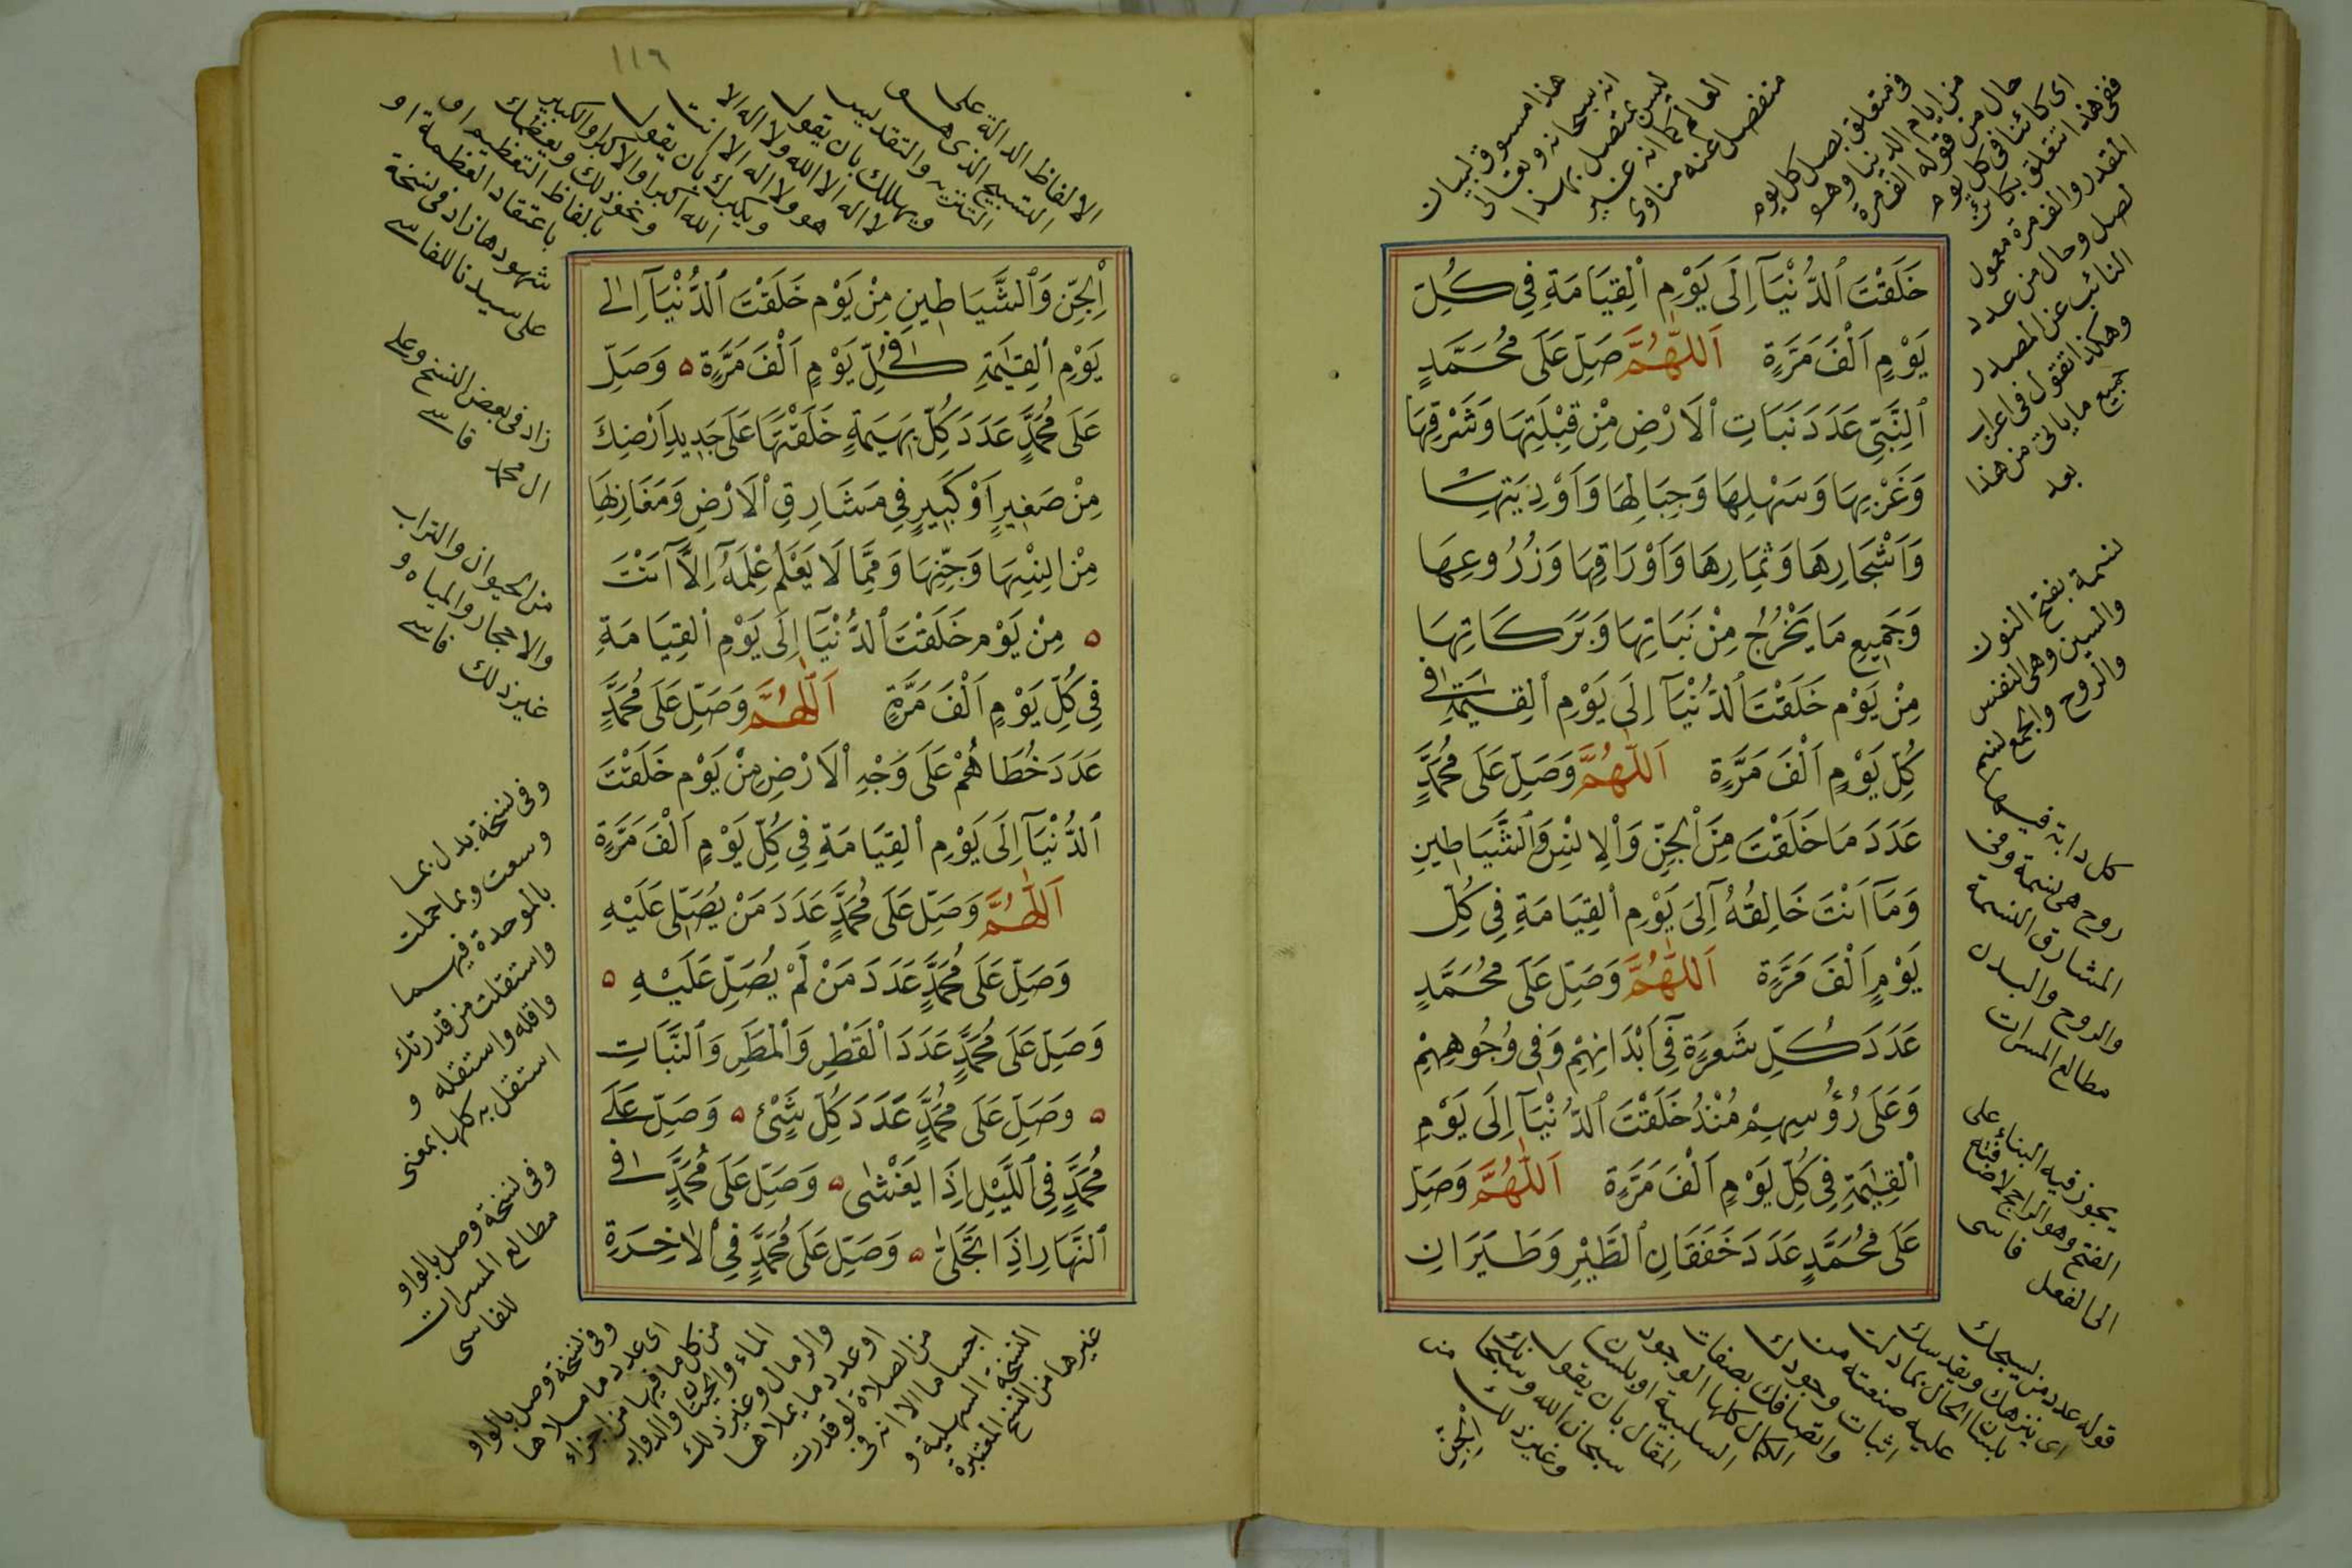 خَلَقْتَ ٱلدُّنْيَآ اِلَى يَوْمِ ٱلْقِيَامَةِ فِي كُلِّ
يَوْمٍ اَلْفَ مَرَّةٍ اَللّٰهُمَّ صَلِّ عَلَى مُحَمَّدٍ
ٱلنَّبِيِّ عَدَدَ نَبَاتِ ٱلْاَرْضِ مِنْ قِبْلَتِهَا وَشَرْقِهَا
وَغَرْبِهَا وَسَهْلِهَا وَجِبَالِهَا وَاَوْدِيَتِهَا
وَاَشْجَارِهَا وَثِمَارِهَا وَاَوْرَاقِهَا وَزُرُوعِهَا
وَجَمِيعِ مَا يَخْرُجُ مِنْ نَبَاتِهَا وَبَرَكَاتِهَا
مِنْ يَوْمِ خَلَقْتَ ٱلدُّنْيَآ اِلَى يَوْمِ ٱلْقِيٰمَةِ فِي
كُلِّ يَوْمٍ اَلْفَ مَرَّةٍ اَللّٰهُمَّ وَصَلِّ عَلَى مُحَمَّدٍ
عَدَدَ مَا خَلَقْتَ مِنَ ٱلْجِنِّ وَٱلْاِنْسِ وَٱلشَّيَاطِينِ
وَمَآ اَنْتَ خَالِقُهُ اِلَى يَوْمِ ٱلْقِيَامَةِ فِي كُلِّ
يَوْمٍ اَلْفَ مَرَّةٍ اَللّٰهُمَّ وَصَلِّ عَلَى مُحَمَّدٍ
عَدَدَ كُلِّ شَعْرَةٍ فِيٓ اَبْدَانِهِمْ وَفِي وُجُوهِهِمْ
وَعَلَى رُؤُسِهِمْ مُنْذُ خَلَقْتَ ٱلدُّنْيَآ اِلَى يَوْمِ
ٱلْقِيٰمَةِ فِي كُلِّ يَوْمٍ اَلْفَ مَرَّةٍ اَللّٰهُمَّ وَصَلِّ
عَلَى مُحَمَّدٍ عَدَدَ خَفَقَانِ ٱلطَّيْرِ وَطَيَرَانِ
هذا مسوق لبيان
انه سبحانه وتعالى
ليس بمتصل بهذا
العالم كما انه غير
منفصل عنه مناوى
فى متعلق بصل كل يوم
من ايام الدنيا وهو
حال من قوله الف مرة
اى كائنا فى كل يوم
ففى هذا تتعلق بكائن
المقدر والف مرة معمول
لصل وحال من عدد
النائب عن المصدر
وهكذا تقول فى اعراب
جميع ما ياتى من هذا
بعد
نسمة بفتح النون
والسين وهى النفس
والروح والجمع نسم
كل دابة فيها
روح هى نسمة وفى
المشارق النسمة
والروح والبدن
مطالع المسرات
يجوز فيه البناء على
الفتح وهو الراجح لاضافته
الى الفعل فاسى
قوله عدد من يسبحك
اى ينزهك ويقدسك
بلسان الحال بما دلت
عليه صنعته من
اثبات وجودك
واتصافك بصفات
الكمال كلها الوجود
السلبية او بلسان
المقال بان يقول
سبحان الله وسبحانك
وغير ذلك من
الجن
١١٦
اَلْجِنِّ وَٱلشَّيَاطِينِ مِنْ يَوْمِ خَلَقْتَ ٱلدُّنْيَآ اِلٰى
يَوْمِ ٱلْقِيٰمَةِ فِي كُلِّ يَوْمٍ اَلْفَ مَرَّةٍ ه وَصَلِّ
عَلَى مُحَمَّدٍ عَدَدَ كُلِّ بَهِيمَةٍ خَلَقْتَهَا عَلَى جَدِيدِ اَرْضِكَ
مِنْ صَغِيرٍ اَوْ كَبِيرٍ فِي مَشَارِقِ ٱلْاَرْضِ وَمَغَارِبِهَا
مِنْ اِنْسِهَا وَجِنِّهَا وَمِمَّا لَا يَعْلَمُ عِلْمَهُ اِلَّآ اَنْتَ
ه مِنْ يَوْمِ خَلَقْتَ ٱلدُّنْيَآ اِلَى يَوْمِ ٱلْقِيَامَةِ
فِي كُلِّ يَوْمٍ اَلْفَ مَرَّةٍ اَللّٰهُمَّ وَصَلِّ عَلَى مُحَمَّدٍ
عَدَدَ خُطَاهُمْ عَلَى وَجْهِ ٱلْاَرْضِ مِنْ يَوْمِ خَلَقْتَ
ٱلدُّنْيَآ اِلَى يَوْمِ ٱلْقِيَامَةِ فِي كُلِّ يَوْمٍ اَلْفَ مَرَّةٍ
اَللّٰهُمَّ وَصَلِّ عَلَى مُحَمَّدٍ عَدَدَ مَنْ يُصَلِّي عَلَيْهِ
وَصَلِّ عَلَى مُحَمَّدٍ عَدَدَ مَنْ لَمْ يُصَلِّ عَلَيْهِ ه
وَصَلِّ عَلَى مُحَمَّدٍ عَدَدَ ٱلْقَطْرِ وَٱلْمَطَرِ وَٱلنَّبَاتِ
ه وَصَلِّ عَلَى مُحَمَّدٍ عَدَدَ كُلِّ شَيْئٍ ه وَصَلِّ عَلَى
مُحَمَّدٍ فِي ٱللَّيْلِ اِذَا يَغْشٰى ه وَصَلِّ عَلَى مُحَمَّدٍ فِي
ٱلنَّهَارِ اِذَا تَجَلّٰى ه وَصَلِّ عَلَى مُحَمَّدٍ فِي ٱلْاٰخِرَةِ
الالفاظ الدالة على
التسبيح الذى هو
التنزيه والتقديس
ويهللك بان يقول
لا اله الا الله ولا اله الا
هو ولا اله الا انت
ويكبرك بان يقول
الله اكبر والاكبر والكبير
ونحو ذلك ويعظمك
بالفاظ التعظيم او
باعتقاد العظمة او
شهودها زاد فى نسخة
على سيدنا للفاسى
زاد فى بعض النسخ وعلى
ال محمد فاسى
من الحيوان والتراب
والاحجار والمياه و
غير ذلك فاسى
وفى نسخة بدل بما
وسعت وبما حملت
بالموحدة فيهما
واستقلت من قدرتك
واقله واستقله و
استقل به كلها بمعنى
وفى نسخة وصل بالواو
مطالع المسرات
للفاسى
وفى نسخة وصل بالواو
اى عدد ما ملاها
من كل ما فيها من اجزاء
الماء والحيتان والدواب
والرمال وغير ذلك
او عدد ما يملاها
من الصلاة لو قدرت
اجساما الا انه فى
النسخة السهلية و
غيرها من النسخ المعتبرة